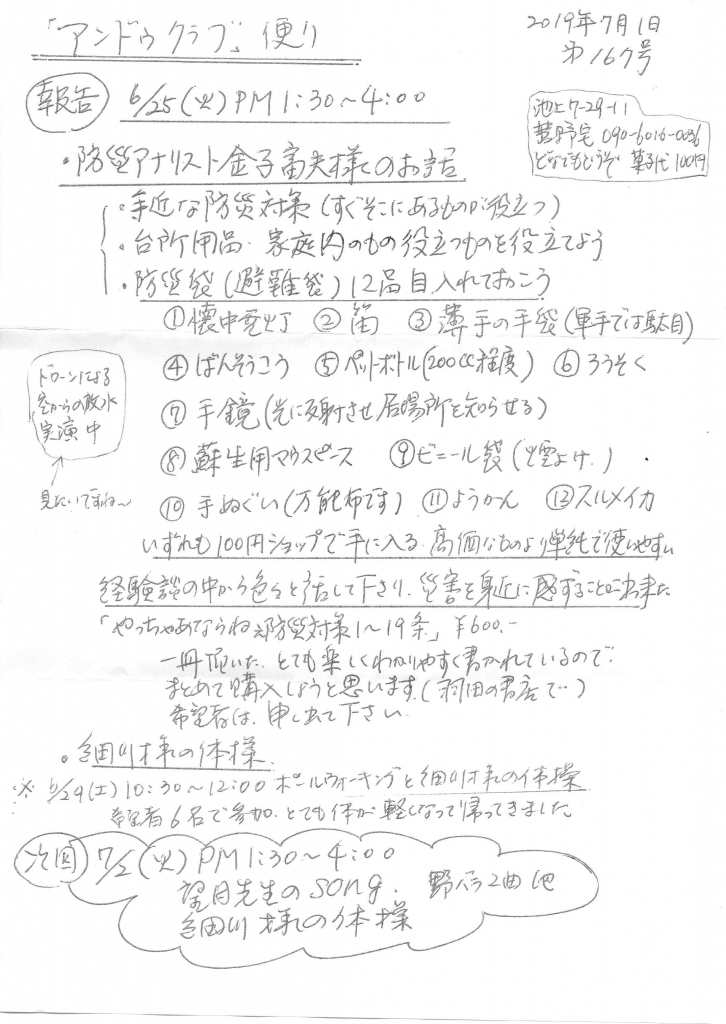 「アンドゥクラブ」便り
2019年7月1日
第167号
報告 6/25(火)PM1:30~4:00
池上7-29-11
菅野宅 090-6016-0036
どなたでもどうぞ 菓子代100円
・防災アナリスト金子富夫様のお話
・手近な防災対策(すぐそこにあるものが役立つ)
・台所用品・家庭内のもの役立つものを役立てよう
・防災袋(避難袋)12品目入れておこう
①懐中電灯 ②笛 ③薄手の手袋(軍手では駄目)
④ばんそうこう ⑤ペットボトル(200cc程度) ⑥ろうそく
⑦手鏡(光に反射させ居場所を知らせる)
⑧蘇生用マウスピース ⑨ビニール袋(煙よけ)
⑩手ぬぐい(万能布です) ⑪ようかん ⑫スルメイカ
いずれも100円ショップで手に入る 高価なものより単純で使いやすい
ドローンによる
空からの散水
実演中
見たいですね~
経験談の中から色々と話して下さり、災害を身近に感ずることが出来た
「やっちゃあならねえ防災対策1~19条」¥600.-
一冊頂いた とても楽しくわかりやすく書かれているので
まとめて購入しようと思います(羽田の書店で)
希望者は、申し出て下さい
・細川様の体操
※6/29(土)10:30~12:00 ポールウォーキングと細川様の体操
希望者6名で参加 とても体が軽くなって帰ってきました
次回 7/2(火)PM1:30~4:00
望月先生のsong. 野バラ2曲 他
細川様の体操